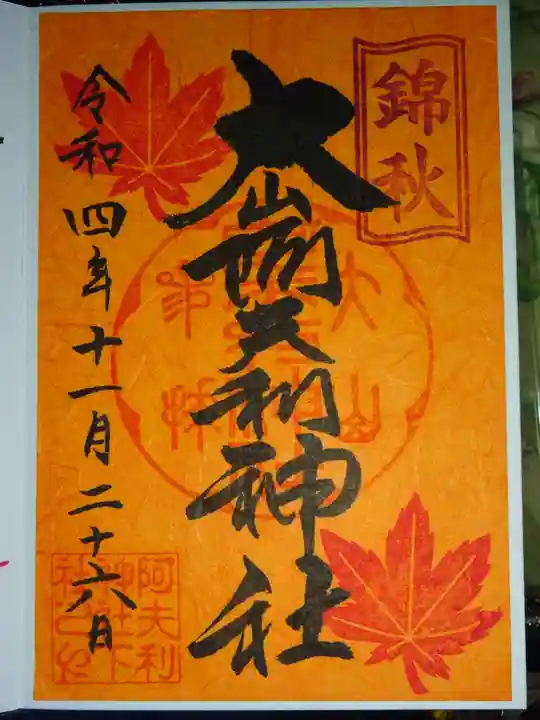 錦秋
大山阿夫利神社
令和四年十一月二十六日
阿夫利
神社下
社之印